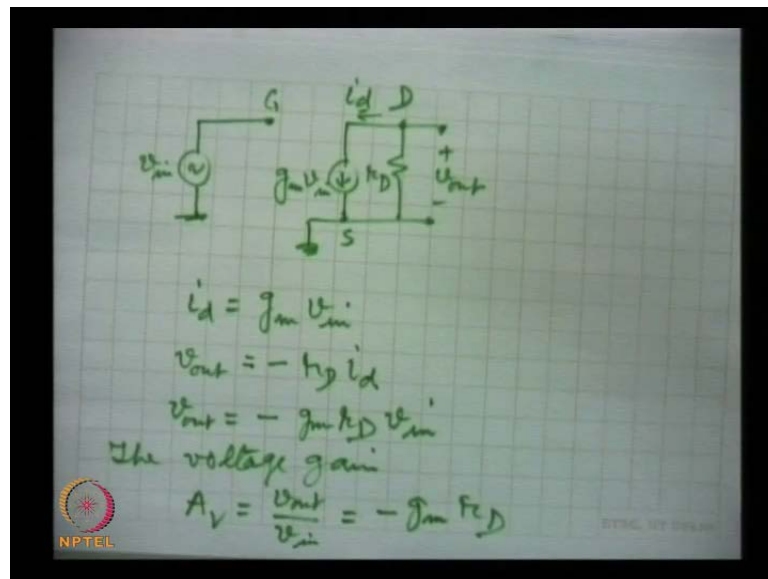 G
i_d D
v_in
g_m v_in
r_D
+
v_out
-
S
i_d = g_m v_in
v_out = - r_D i_d
v_out = - g_m r_D v_in
The voltage gain
A_v = v_out / v_in = - g_m r_D
NPTEL